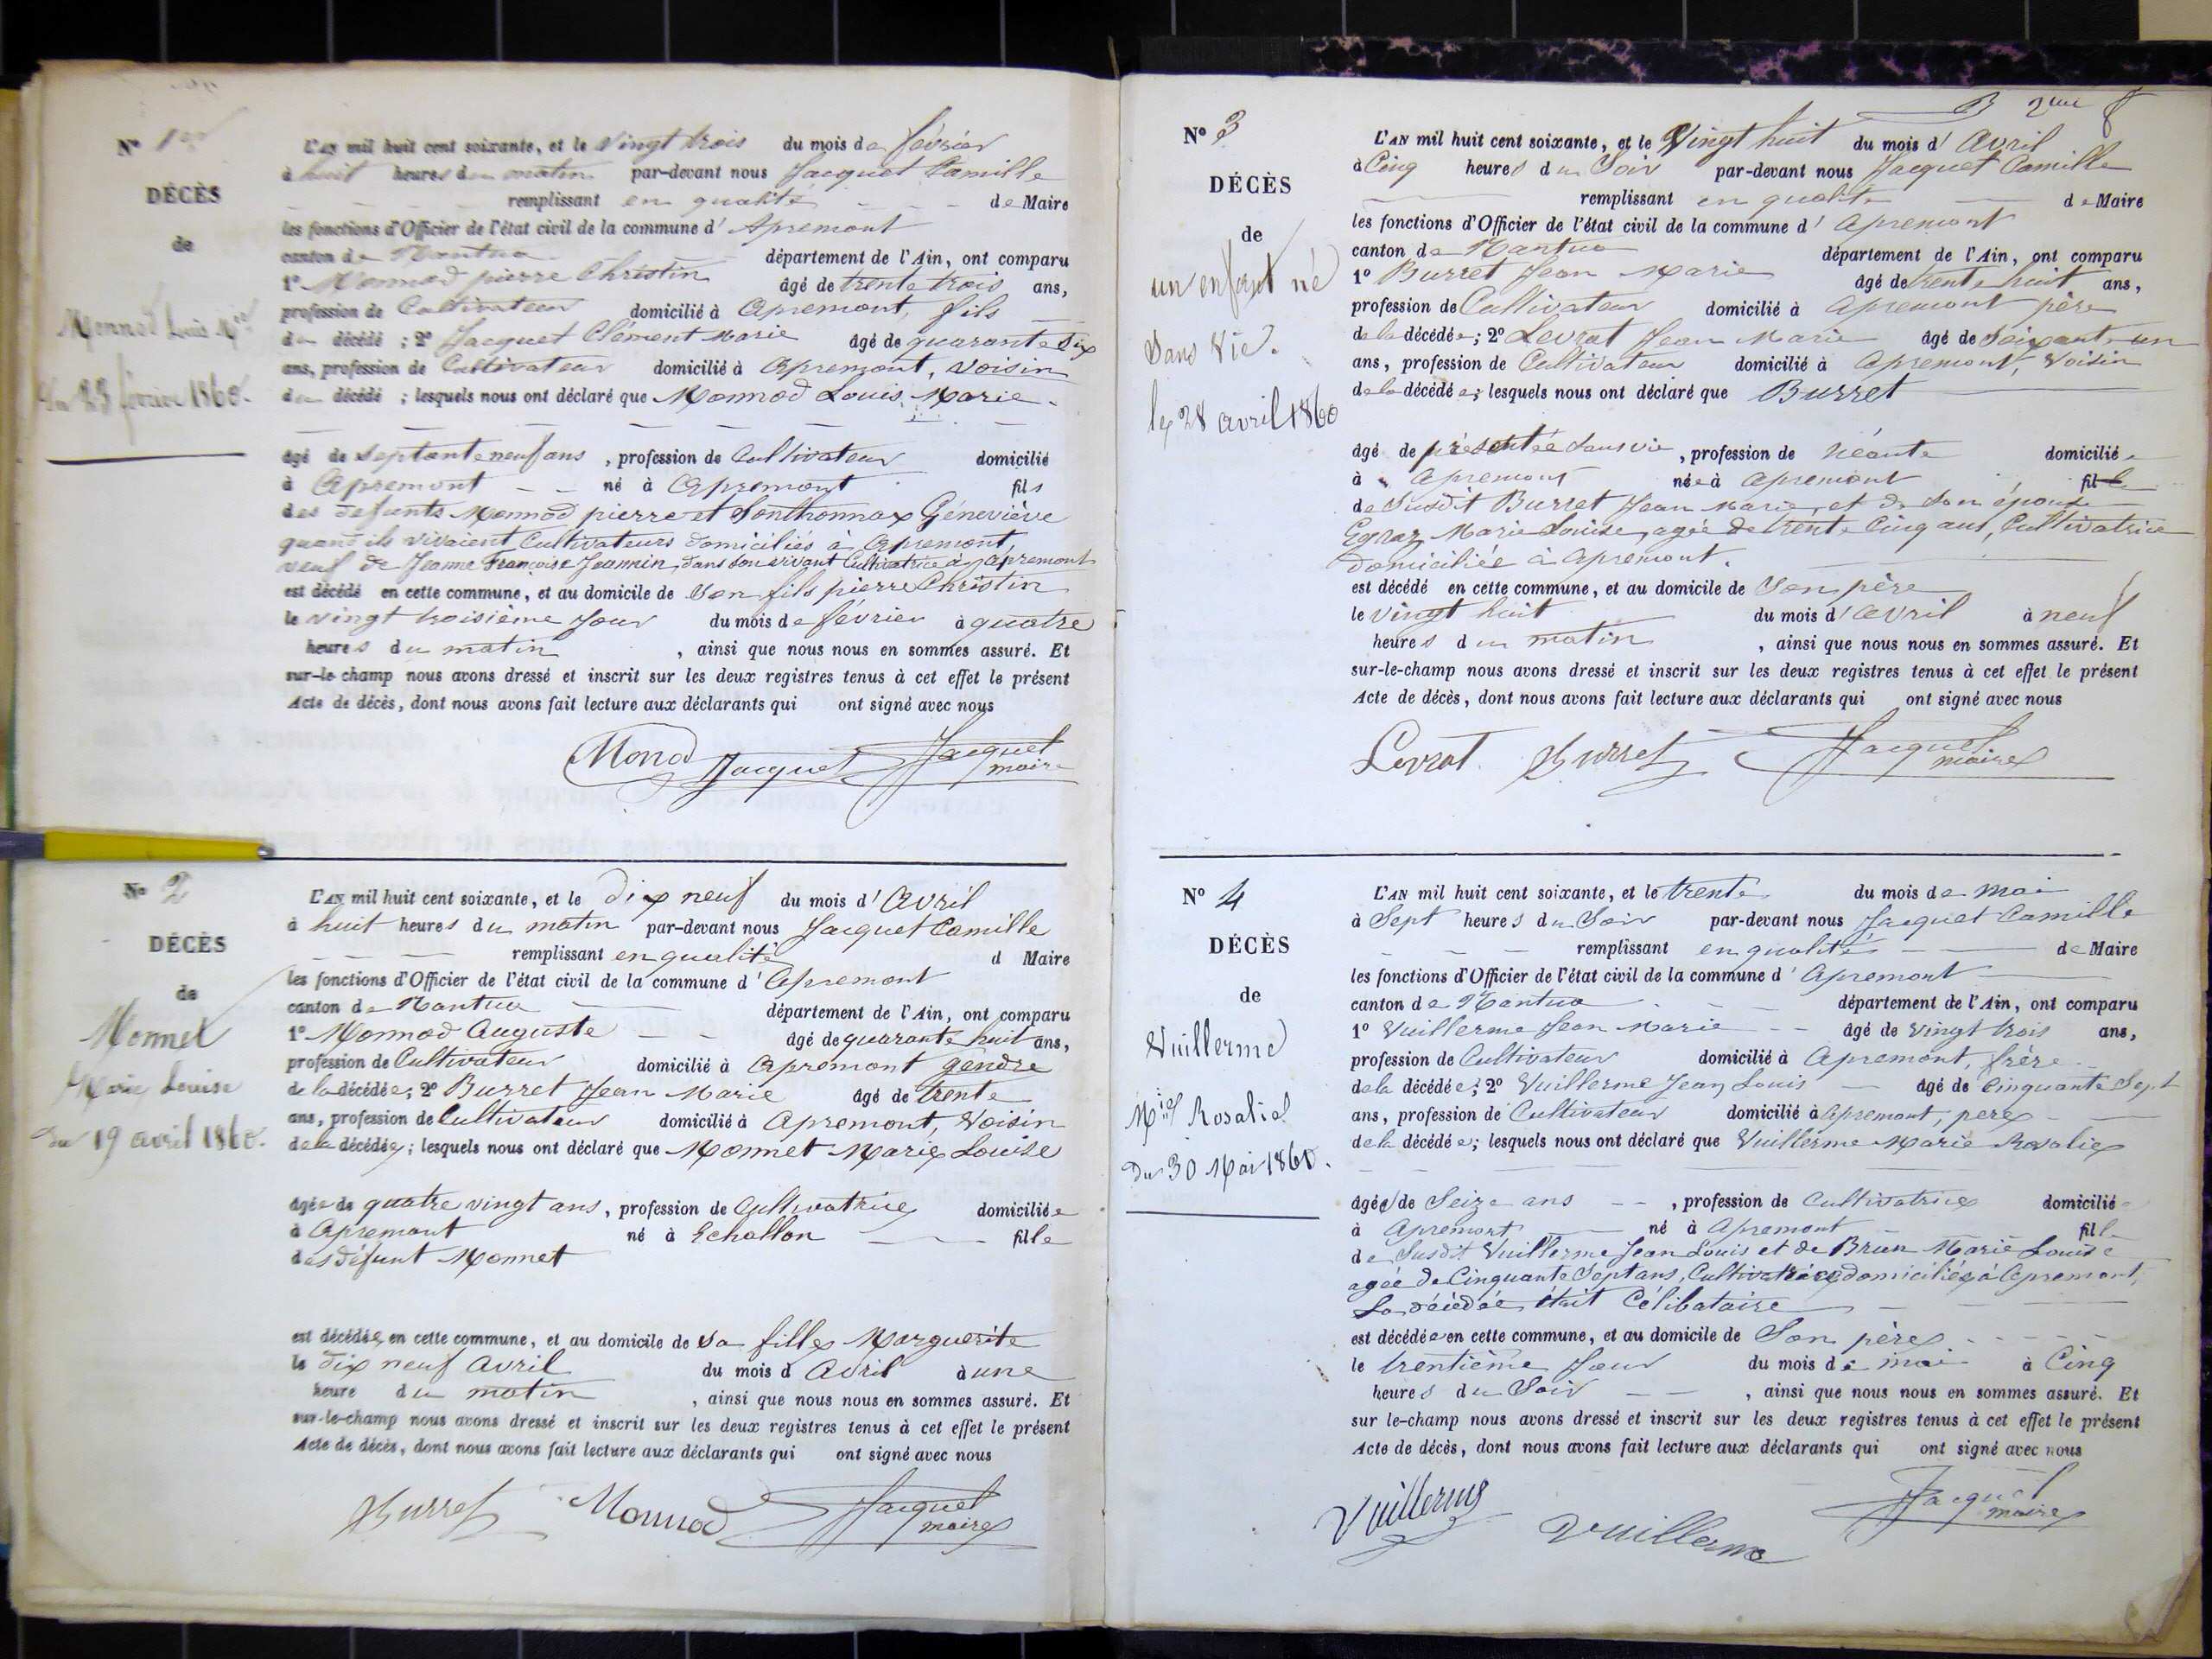 N° 1er
DÉCÈS
de
Monnod Louis Mie
du 23 février 1860.
L'AN mil huit cent soixante, et le vingt trois du mois de février
à huit heures du matin par-devant nous Jacquet Camille
remplissant en qualité de Maire
les fonctions d'Officier de l'état civil de la commune d'Apremont
canton de Nantua département de l'Ain, ont comparu
1° Monnod pierre Christin âgé de trente trois ans,
profession de Cultivateur domicilié à Apremont, fils
du décédé ; 2° Jacquet Clément Marie âgé de quarante six
ans, profession de Cultivateur domicilié à Apremont, Voisin
du décédé ; lesquels nous ont déclaré que Monnod Louis Marie
âgé de septante neuf ans, profession de Cultivateur domicilié
à Apremont né à Apremont fils
des défunts Monnod pierre et Sonthonnax Géneviève
quand ils vivaient Cultivateurs domiciliés à Apremont,
veuf de Jeanne Françoise Jeannin, dans son vivant Cultivatrice à Apremont
est décédé en cette commune, et au domicile de Son fils pierre Christin
le vingt troisième Jour du mois de février à quatre
heures du matin, ainsi que nous nous en sommes assuré. Et
sur-le-champ nous avons dressé et inscrit sur les deux registres tenus à cet effet le présent
Acte de décès, dont nous avons fait lecture aux déclarants qui ont signé avec nous
Monod Jacquet Jacquet
maire
N° 2
DÉCÈS
de
Monnet
Marie Louise
du 19 avril 1860.
L'AN mil huit cent soixante, et le dix neuf du mois d'Avril
à huit heures du matin par-devant nous Jacquet Camille
remplissant en qualité d Maire
les fonctions d'Officier de l'état civil de la commune d'Apremont
canton de Nantua département de l'Ain, ont comparu
1° Monnod Auguste âgé de quarante huit ans,
profession de Cultivateur domicilié à Apremont gendre
de la décédée; 2° Burret Jean Marie âgé de trente
ans, profession de Cultivateur domicilié à Apremont, Voisin
de la décédée; lesquels nous ont déclaré que Monnet Marie Louise
âgée de quatre vingt ans, profession de Cultivatrice domiciliée
à Apremont né à Echallon fille
des défunt Monnet
est décédée en cette commune, et au domicile de Sa fille Marguerite
le dix neuf Avril du mois d Avril à une
heure du matin, ainsi que nous nous en sommes assuré. Et
sur-le-champ nous avons dressé et inscrit sur les deux registres tenus à cet effet le présent
Acte de décès, dont nous avons fait lecture aux déclarants qui ont signé avec nous
Burret Monnod Jacquet
maire
N° 3
DÉCÈS
de
un enfant né
Sans Vie.
le 28 avril 1860
L'AN mil huit cent soixante, et le Vingt huit du mois d'Avril
à Cinq heures du Soir par-devant nous Jacquet Camille
remplissant en qualité de Maire
les fonctions d'Officier de l'état civil de la commune d'Apremont
canton de Nantua département de l'Ain, ont comparu
1° Burret Jean Marie âgé de trente huit ans,
profession de Cultivateur domicilié à Apremont père
de la décédée; 2° Levrat Jean Marie âgé de Soixante un
ans, profession de Cultivateur domicilié à Apremont, Voisin
de la décédée; lesquels nous ont déclaré que Burret
âgé de présentée sans vie, profession de Néante domiciliée
à Apremont née à Apremont fille
de Susdit Burret Jean Marie, et de Son épouse
Egraz Marie Louise, agée de trente Cinq ans, Cultivatrice
domiciliée à Apremont.
est décédé en cette commune, et au domicile de Son père
le Vingt huit du mois d'Avril à neuf
heures du matin, ainsi que nous nous en sommes assuré. Et
sur-le-champ nous avons dressé et inscrit sur les deux registres tenus à cet effet le présent
Acte de décès, dont nous avons fait lecture aux déclarants qui ont signé avec nous
Levrat Burret Jacquet
maire
N° 4
DÉCÈS
de
Vuillerme
Mie Rosalie
Du 30 Mai 1860.
L'AN mil huit cent soixante, et le trente du mois de mai
à Sept heures du Soir par-devant nous Jacquet Camille
remplissant en qualité de Maire
les fonctions d'Officier de l'état civil de la commune d'Apremont
canton de Nantua département de l'Ain, ont comparu
1° Vuillerme Jean Marie âgé de Vingt trois ans,
profession de Cultivateur domicilié à Apremont, frère
de la décédée; 2° Vuillerme Jean Louis âgé de Cinquante Sept
ans, profession de Cultivateur domicilié à Apremont, père
de la décédée; lesquels nous ont déclaré que Vuillerme Marie Rosalie
âgée de Seize ans, profession de Cultivatrice domiciliée
à Apremont né à Apremont fille
de Susdit Vuillerme Jean Louis et de Brun Marie Louise
agée de Cinquante Sept ans, Cultivatrice domiciliée à Apremont,
La décédée était Célibataire
est décédée en cette commune, et au domicile de Son père
le trentième Jour du mois de mai à Cinq
heures du Soir, ainsi que nous nous en sommes assuré. Et
sur le-champ nous avons dressé et inscrit sur les deux registres tenus à cet effet le présent
Acte de décès, dont nous avons fait lecture aux déclarants qui ont signé avec nous
Vuillerme Vuillerme Jacquet
maire